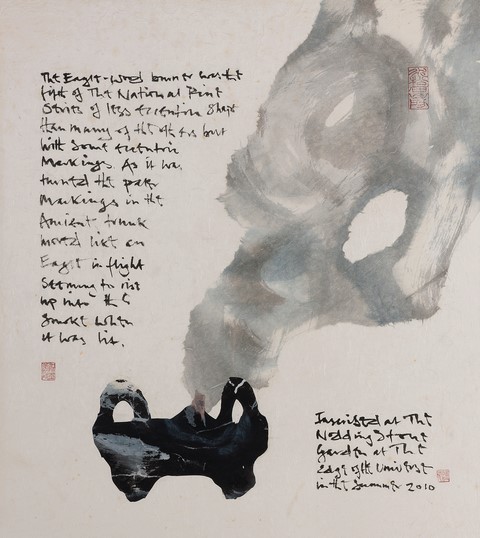 The Eagle-wood burner was the
first of The National
Series of less eccentric shape
than many of the others but
with some eccentric
markings. As it was
turned the paler
markings in the
Ancient trunk
moved like an
Eagle in flight
seeming to rise
up into the
smoke when
it was lit.
Inscribed at The
Nodding Stone
Garden at The
edge of the Universe
in the Summer 2010